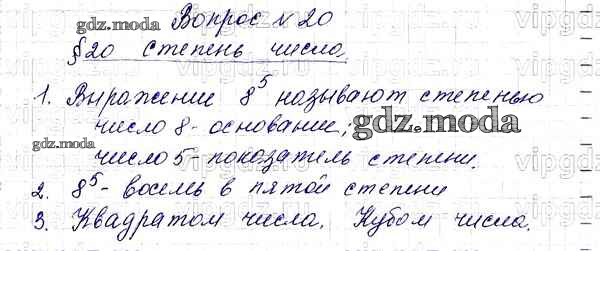 Вопрос №20
gdz.moda
§20 Степень числа.
1. Выражение 8⁵ называют степенью
число 8 - основание;
gdz.moda
gdz.moda
число 5 - показатель степени.
2. 8⁵ - восемь в пятой степени
3. Квадратом числа. Кубом числа.